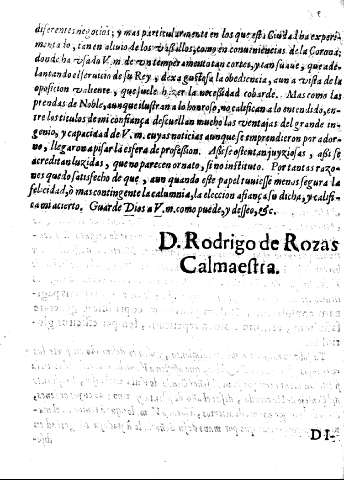 diferentes negocios; y mas particularmente en los que esta Ciudad ha experi-
mentado, tan en aliuio de los Vassallos, como en conueniencias de la Corona;
donde ha vsado V.m. de vn temperamento tan cortes, y tan suaue, que ade-
lantando el seruicio de su Rey, dexa gustosa la obediencia, aun a vista de la
oposicion valiente, que suele hazer la necessidad cobarde. Mas como las
prendas de Noble, aunque ilustran a lo honroso, no califican a lo entendido, en-
tre los titulos de mi confiança descuellan mucho las ventajas del grande in-
genio, y capacidad de V.m. cuyas noticias aunque se emprendieron por ador-
no, llegaron a pisar la esfera de profession. Assi se ostentan juyziosas, assi se
acreditan luzidas, que no parecen ornato, si no instituto. Por tantas razo-
nes quedo satisfecho de que, aun quando este papel tuuiesse menos segura la
felicidad, ò mas contingente la calumnia, la eleccion afiança su dicha, y califi-
ca mi acierto. Guarde Dios a V.m. como puede, y desseo, &c.
D. Rodrigo de Rozas
Calmaestra.
DI-